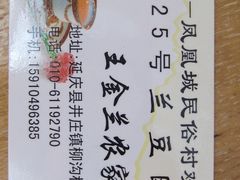 一凤凰城民俗村
25号兰豆
王金兰农家
地址:延庆县井庄镇柳沟
电话:010-61192790
手机:15910496385